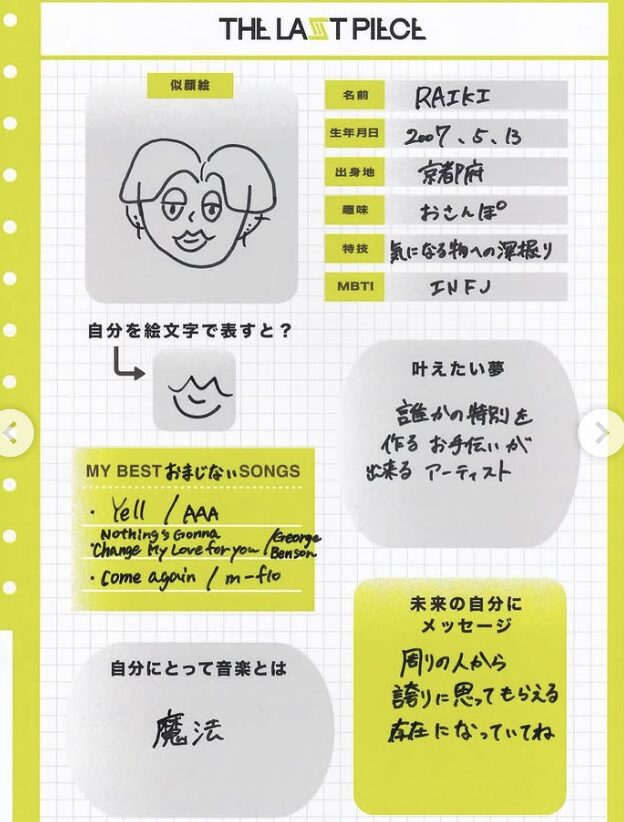 THE LAST PIECE
似顔絵
名前
RAIKI
生年月日
2007.5.13
出身地
京都府
趣味
おさんぽ
特技
気になる物への深掘り
MBTI
INFJ
自分を絵文字で表すと？
叶えたい夢
誰かの特別を
作るお手伝いが
出来る アーティスト
MY BEST おまじない SONGS
・Yell / AAA
・Nothing's Gonna
Change My Love for you / George
Benson
・Come again / m-flo
未来の自分に
メッセージ
周りの人から
誇りに思ってもらえる
存在になっていてね
自分にとって音楽とは
魔法